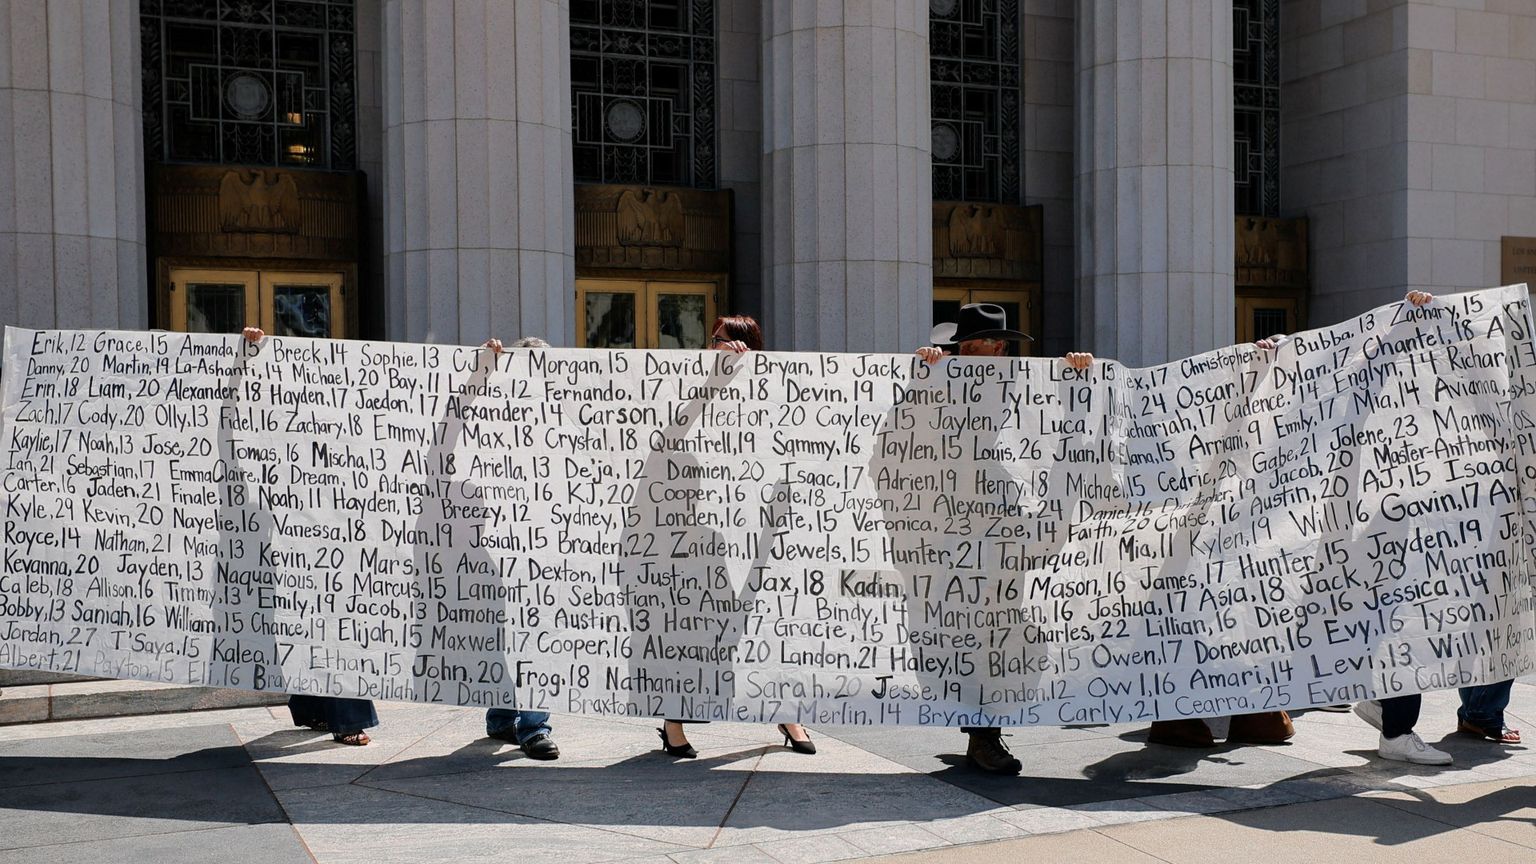 Erik, 12 Grace, 15 Amanda, 15 Breck, 14 Sophie, 13 CJ, 17 Morgan, 15 David, 16 Bryan, 15 Jack, 15 Gage, 14 Lexi, 15 Christopher, 17 Bubba, 13 Zachary, 15
Danny, 20 Martin, 19 La-Ashanti, 14 Michael, 20 Bay, 11 Landis, 12 Fernando, 17 Lauren, 18 Devin, 19 Daniel, 16 Tyler, 19 Oscar, 17 Dylan, 17 Chantel, 18
Erin, 18 Liam, 20 Alexander, 18 Hayden, 17 Jaedon, 17 Alexander, 14 Carson, 16 Hector, 20 Cayley, 15 Jaylen, 21 Luca, Cadence, 14 Englyn, 14 Richard,
Zach, 17 Cody, 20 Olly, 13 Fidel, 16 Zachary, 18 Emmy, 17 Max, 18 Crystal, 18 Quantrell, 19 Sammy, 16 Taylen, 15 Louis, 26 Juan, 16 Arriani, 9 Emily, 17 Mia, 14 Avianna,
Kaylie, 17 Noah, 13 Jose, 20 Tomas, 16 Mischa, 13 Ali, 18 Ariella, 13 De'ja, 12 Damien, 20 Isaac, 17 Adrien, 19 Henry, 18 Michael, 15 Cedric, 20 Gabe, 21 Jolene, 23 Manny, 17
Ian, 21 Sebastian, 17 EmmaClaire, 16 Dream, 10 Adrien, 17 Carmen, 16 KJ, 20 Cooper, 16 Cole, 18 Jayson, 21 Alexander, 24 Daniel, 16 Christopher, 19 Jacob, 20 Master-Anthony,
Carter, 16 Jaden, 21 Finale, 18 Noah, 11 Hayden, 13 Breezy, 12 Sydney, 15 Londen, 16 Nate, 15 Veronica, 23 Zoe, 14 Faith, 20 Chase, 16 Austin, 20 AJ, 15 Isaac
Kyle, 29 Kevin, 20 Nayelie, 16 Vanessa, 18 Dylan, 19 Josiah, 15 Braden, 22 Zaiden, 11 Jewels, 15 Hunter, 21 Tahrique, 11 Mia, 11 Kylen, 19 Will, 16 Gavin, 17
Royce, 14 Nathan, 21 Maia, 13 Kevin, 20 Mars, 16 Ava, 17 Dexton, 14 Justin, 18 Jax, 18 Kadin, 17 AJ, 16 Mason, 16 James, 17 Hunter, 15 Jayden, 19
Kevanna, 20 Jayden, 13 Naquavious, 16 Marcus, 15 Lamont, 16 Sebastian, 16 Amber, 17 Bindy, 14 Maricarmen, 16 Joshua, 17 Asia, 18 Jack, 20 Marina,
Caleb, 18 Allison, 16 Timmy, 13 Emily, 19 Jacob, 13 Damone, 18 Austin, 13 Harry, 17 Gracie, 15 Desiree, 17 Charles, 22 Lillian, 16 Diego, 16 Jessica, 14
Bobby, 13 Saniah, 16 William, 15 Chance, 19 Elijah, 15 Maxwell, 17 Cooper, 16 Alexander, 20 Landon, 21 Haley, 15 Blake, 15 Owen, 17 Donevan, 16 Evy, 16 Tyson, 17
Jordan, 27 T'Saya, 15 Kalea, 17 Ethan, 15 John, 20 Frog, 18 Nathaniel, 19 Sarah, 20 Jesse, 19 London, 12 Owl, 16 Amari, 14 Levi, 13 Will, 14
Albert, 21 Payton, 15 Eli, 16 Brayden, 15 Delilah, 12 Daniel, 12 Braxton, 12 Natalie, 17 Merlin, 14 Bryndyn, 15 Carly, 21 Cearra, 25 Evan, 16 Caleb, 14